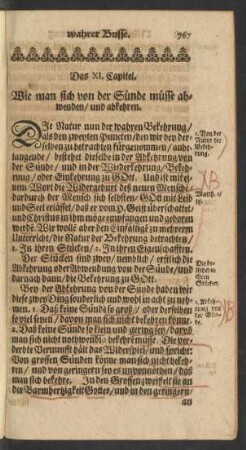 wahrer Busse. 767
Das XI. Capitel.
Wie man sich von der Sünde müsse ab-
wenden/ und abkehren.
DIe Natur nun der wahren Bekehrung/
als den zweyten Puncten/ den wir bey der-
selben zu betrachten fürgenommen/ anbe-
langende/ bestehet dieselbe in der Abkehrung von
der Sünde/ und in der Wiederkehrung/ Bekeh-
rung/ oder Einkehrung zu GOtt. Und ist mit ei-
nem Wort die Widergeburt des neuen Mensche/
dardurch der Mensch sich selbsten/ GOtt mit Leib
und Seel
und Christus in ihm
werde. Wir wollē aber den Einfältigē zu mehrerm
Unterricht/ die Natur der Bekehrung betrachten/
1. In ihren Stücken/ 2. In ihren Eigenschafften.
Der Stücken sind zwey/ nemblich/ erstlich die
Abkehrung oder Abwendung von der Sünde/ und
darnach dann/ die Bekehrung zu GOtt.
Bey der Abkehrung von der Sünde haben wir
diese zwey Ding sonderlich und wohl in acht zu neh-
men. 1. Daß keine Sünd so groß/ oder derselben
so viel seyen/ davon man sich nicht bekehren könne.
2. Daß keine Sünd so klein und gering sey/ darvon
man sich nicht nothwendig bekehrē müsse. Die ver-
derbte Vernunfft hält das Widerspiel/ und spricht:
Von grossen Sünden könne man sich nicht bekeh-
ren/ und von geringern sey es unvonnöthen/ daß
man sich bekehre. In den Grossen zweiflet sie an
der Barmhertzigkeit Gottes/ und in den geringern/
an
1. Von der
Natur der
Bekeh-
rung.
Matth. 1/
1. Abkeh-
rung von
der Sün-
de.